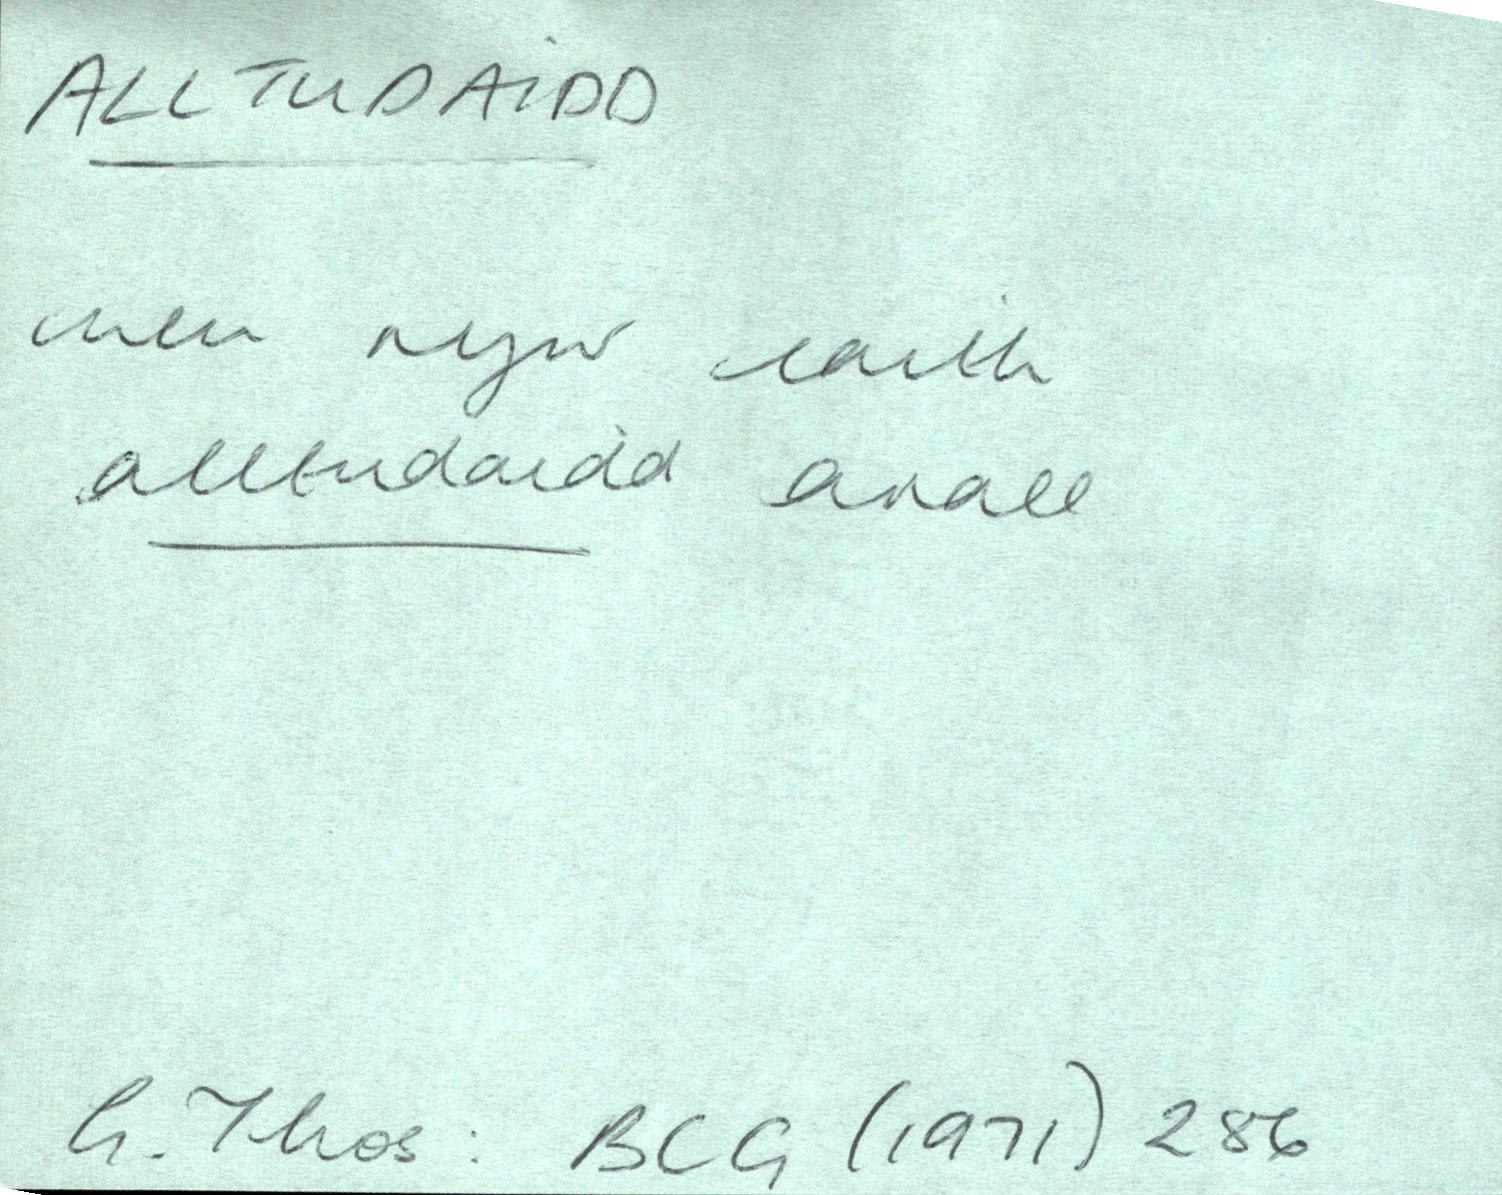 ALLTUDAIDD
mewn rhyw iaith
alltudaidd arall
G. Thos: BCG (1971) 286